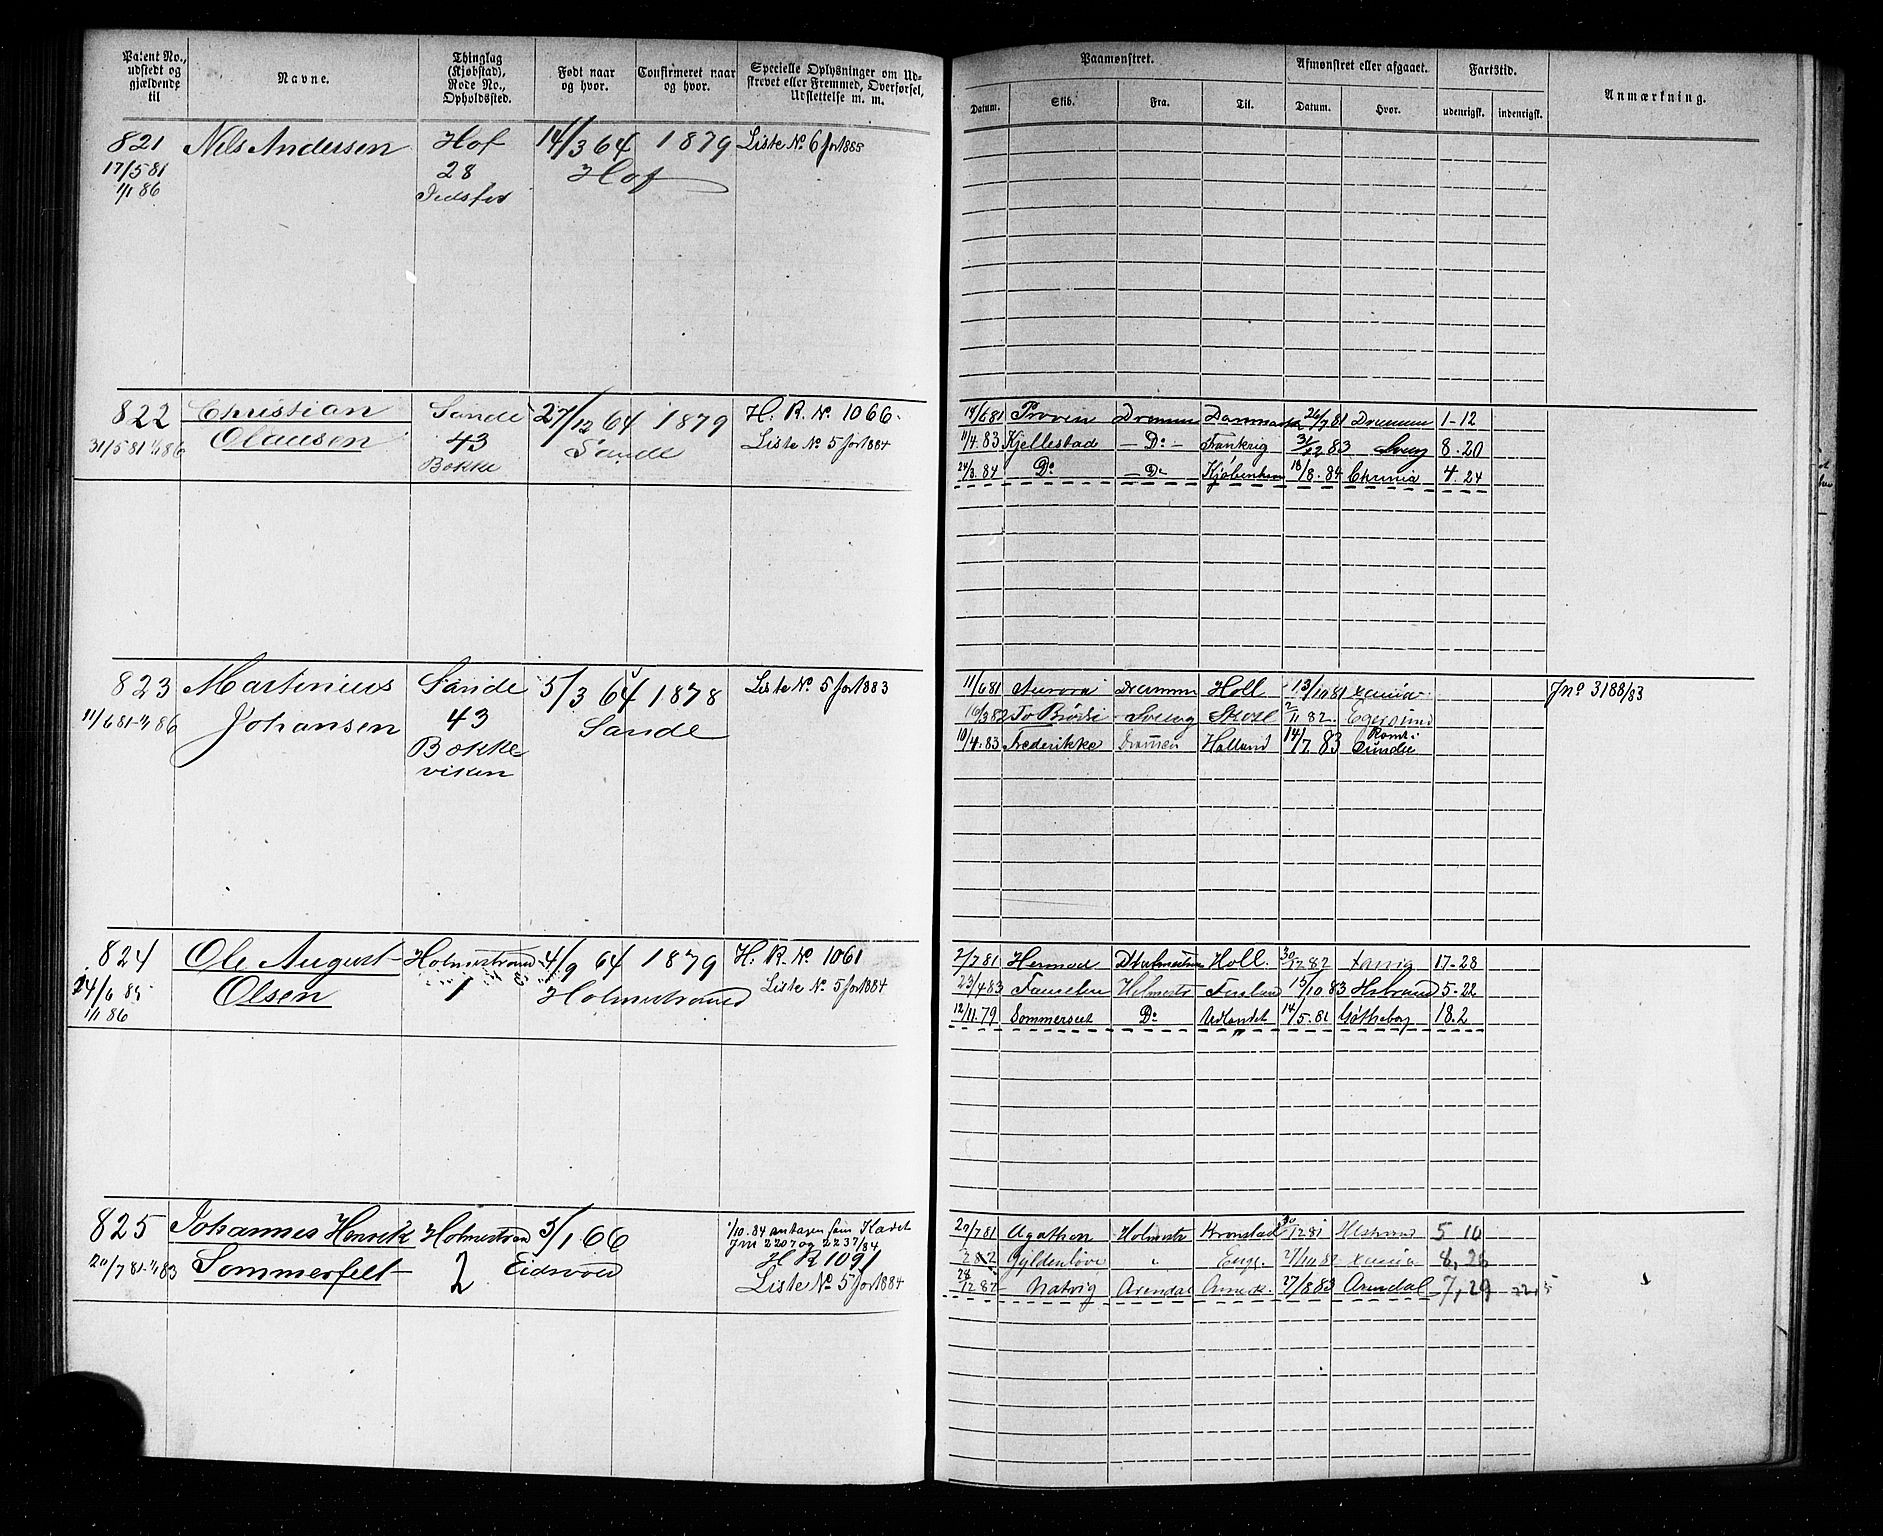 Patent No., udstedt og gjældende til
Navne.
Thinglag (Kjøbstad), Rode No., Opholdssted.
Født naar og hvor.
Confirmeret naar og hvor.
Specielle Oplysninger om Udskrevet eller Fremmed, Overførsel, Udslettelse m. m.
821 Nils Andersen Hof 14/3 64 1879 Liste No 6 for 1885
17/5 81 28 Hof
1/1 86
822 Christian Sande 27/12 64 1879 H. R. No 1066.
31/5 81 1/1 86 Olausen 43 Sande Liste No 5 for 1884
Bokke
823 Martinius Sande 5/3 64 1878 Liste No 5 for 1883
11/6 81-1/1 86 Johansen 43 Sande
Bokke
viken
824 Ole August Holmestrand 4/9 64 1879 H. R. No 1061
Olsen 1 Holmestrand Liste No 5 for 1884
1/1 86
825 Johannes Henrik Holmestrand 5/1 66 1/10. 84 antagen som Kadet
Jnr 2207 og 2237/84
20/7 81-1/1 83 Sommerfelt 2 Eidsvold H R 1091
Liste No 5 for 1884
Paamønstret.
Afmønstret eller afgaaet.
Fartstid.
Anmærkning.
Datum. Skib. Fra. Til. Datum. Hvor. udenrigsk. indenrigsk.
14/6 81 Proven Drammen Danmark 26/7 81 Drammen 1-12
11/4. 83 Kjellestad - Do - Frankrig 83 8. 20
84 Do - Do Kjøbenhavn 18/8. 84 Chrania 4. 24
11/6 81 Aurora Drammen Holl 13/10 81 Xania Jno 3188/83
16/3 82 To Brødre Skotl 82. Egersund
10/4. 83 Frederikke Dramen Holland 14/7 83 Roms-
dinder
2/7 81 Hermod Holmestrand Holl. 30/12 82 Xania 17-28
23/4 83 Holmestr 13/10 83 Hstrand 5-22
12/11. 79 Sommerset Do Udlandet 14/5. 81 Gøtheborg 18. 2
20/7 81 Agathon Holmestr Kronstad 30/12 81 Hstrand 5 10
Gyldenløve " Eng. 27/10 82 Xania 8, 26
28/12 82 Natvig Arendal Amerik. 27/8 83 Arendal 7, 29